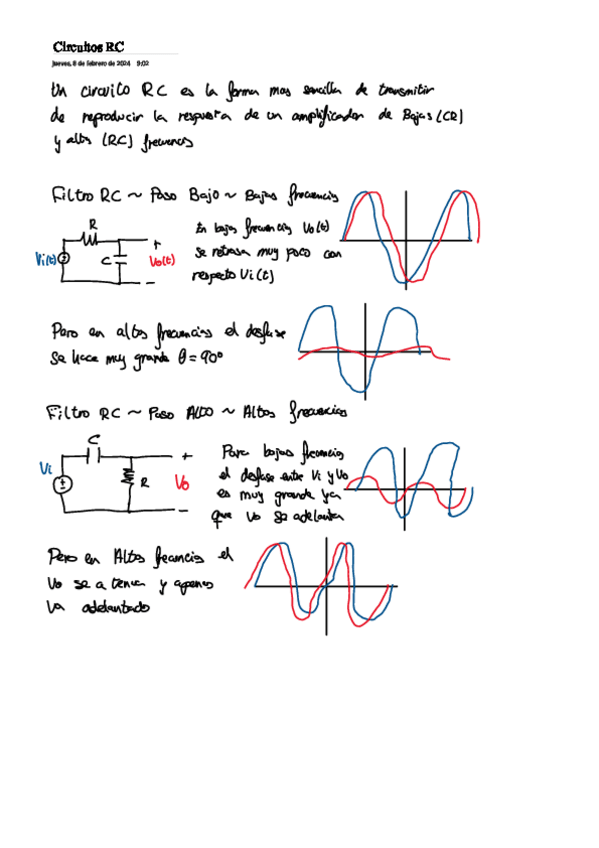 Circuitos RC
jueves, 8 de febrero de 2024 9:02
Un circuito RC es la forma mas sencilla de transmitir
de reproducir la respuesta de un amplificador de Bajas (CR)
y altas (RC) frecuencias
Filtro RC ~ Paso Bajo ~ Bajas frecuencias
R
Vi(t)
C
+
Vo(t)
-
En bajas frecuencias Vo(t)
se retrasa muy poco con
respecto Vi(t)
Pero en altas frecuencias el desfase
se hace muy grande θ = 90°
Filtro RC ~ Paso Alto ~ Altas frecuencias
C
Vi
R
+
Vo
-
Para bajas frecuencias
el desfase entre Vi y Vo
es muy grande ya
que Vo se adelanta
Pero en Altas frecuencias el
Vo se atenua y apenas
va adelantado